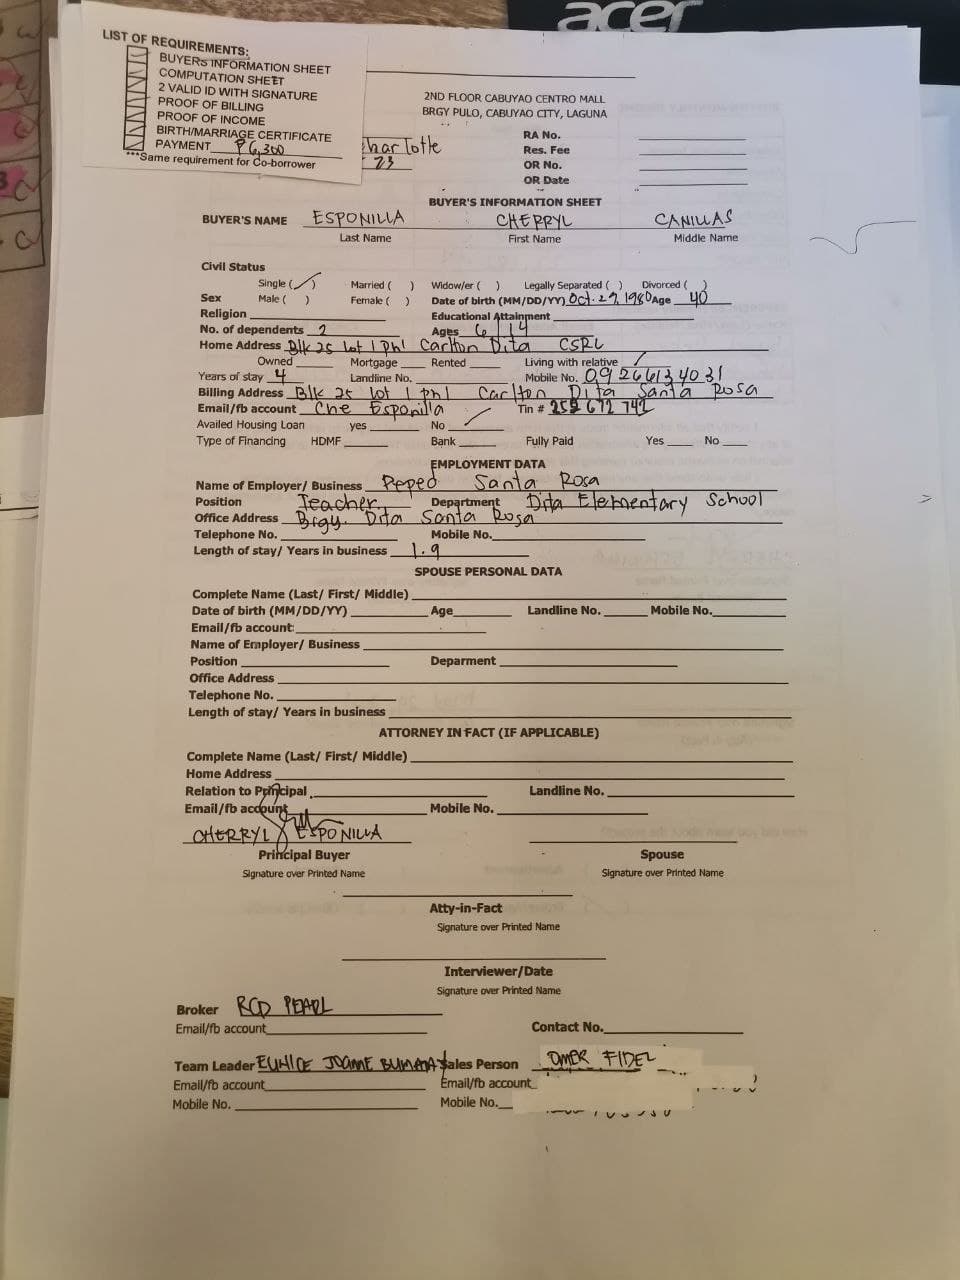 acer
LIST OF REQUIREMENTS:
BUYERS INFORMATION SHEET
COMPUTATION SHEET
2 VALID ID WITH SIGNATURE
PROOF OF BILLING
PROOF OF INCOME
BIRTH/MARRIAGE CERTIFICATE
PAYMENT ₱6,300
***Same requirement for Co-borrower
harlotte
23
2ND FLOOR CABUYAO CENTRO MALL
BRGY PULO, CABUYAO CITY, LAGUNA
RA No.
Res. Fee
OR No.
OR Date
BUYER'S INFORMATION SHEET
BUYER'S NAME ESPONILLA CHERRYL CANILLAS
Last Name First Name Middle Name
Civil Status
Single ( / ) Married ( ) Widow/er ( ) Legally Separated ( ) Divorced ( )
Sex Male ( ) Female ( ) Date of birth (MM/DD/YY) Oct. 29, 1980 Age 40
Religion Educational Attainment
No. of dependents 2 Ages 6 | 14
Home Address Blk 25 lot 1 ph1 Carlton Dita CSRL
Owned Mortgage Rented Living with relative /
Years of stay 4 Landline No. Mobile No. 09266134031
Billing Address Blk 25 lot 1 ph1 Carlton Dita Santa Rosa
Email/fb account Che Esponilla Tin # 252 672 742
Availed Housing Loan yes No /
Type of Financing HDMF Bank Fully Paid Yes No
EMPLOYMENT DATA
Name of Employer/ Business Peped Santa Rosa
Position Teacher Department Dita Elementary School
Office Address Brgy. Dita Santa Rosa
Telephone No. Mobile No.
Length of stay/ Years in business 1.9
SPOUSE PERSONAL DATA
Complete Name (Last/ First/ Middle)
Date of birth (MM/DD/YY) Age Landline No. Mobile No.
Email/fb account:
Name of Employer/ Business
Position Deparment
Office Address
Telephone No.
Length of stay/ Years in business
ATTORNEY IN FACT (IF APPLICABLE)
Complete Name (Last/ First/ Middle)
Home Address
Relation to Principal Landline No.
Email/fb account Mobile No.
CHERRYL ESPONILLA
Principal Buyer Spouse
Signature over Printed Name Signature over Printed Name
Atty-in-Fact
Signature over Printed Name
Interviewer/Date
Signature over Printed Name
Broker RCD PEARL
Email/fb account Contact No.
Team Leader EUNICE JOANNE Sales Person OMER FIDEL
Email/fb account Email/fb account
Mobile No. Mobile No.